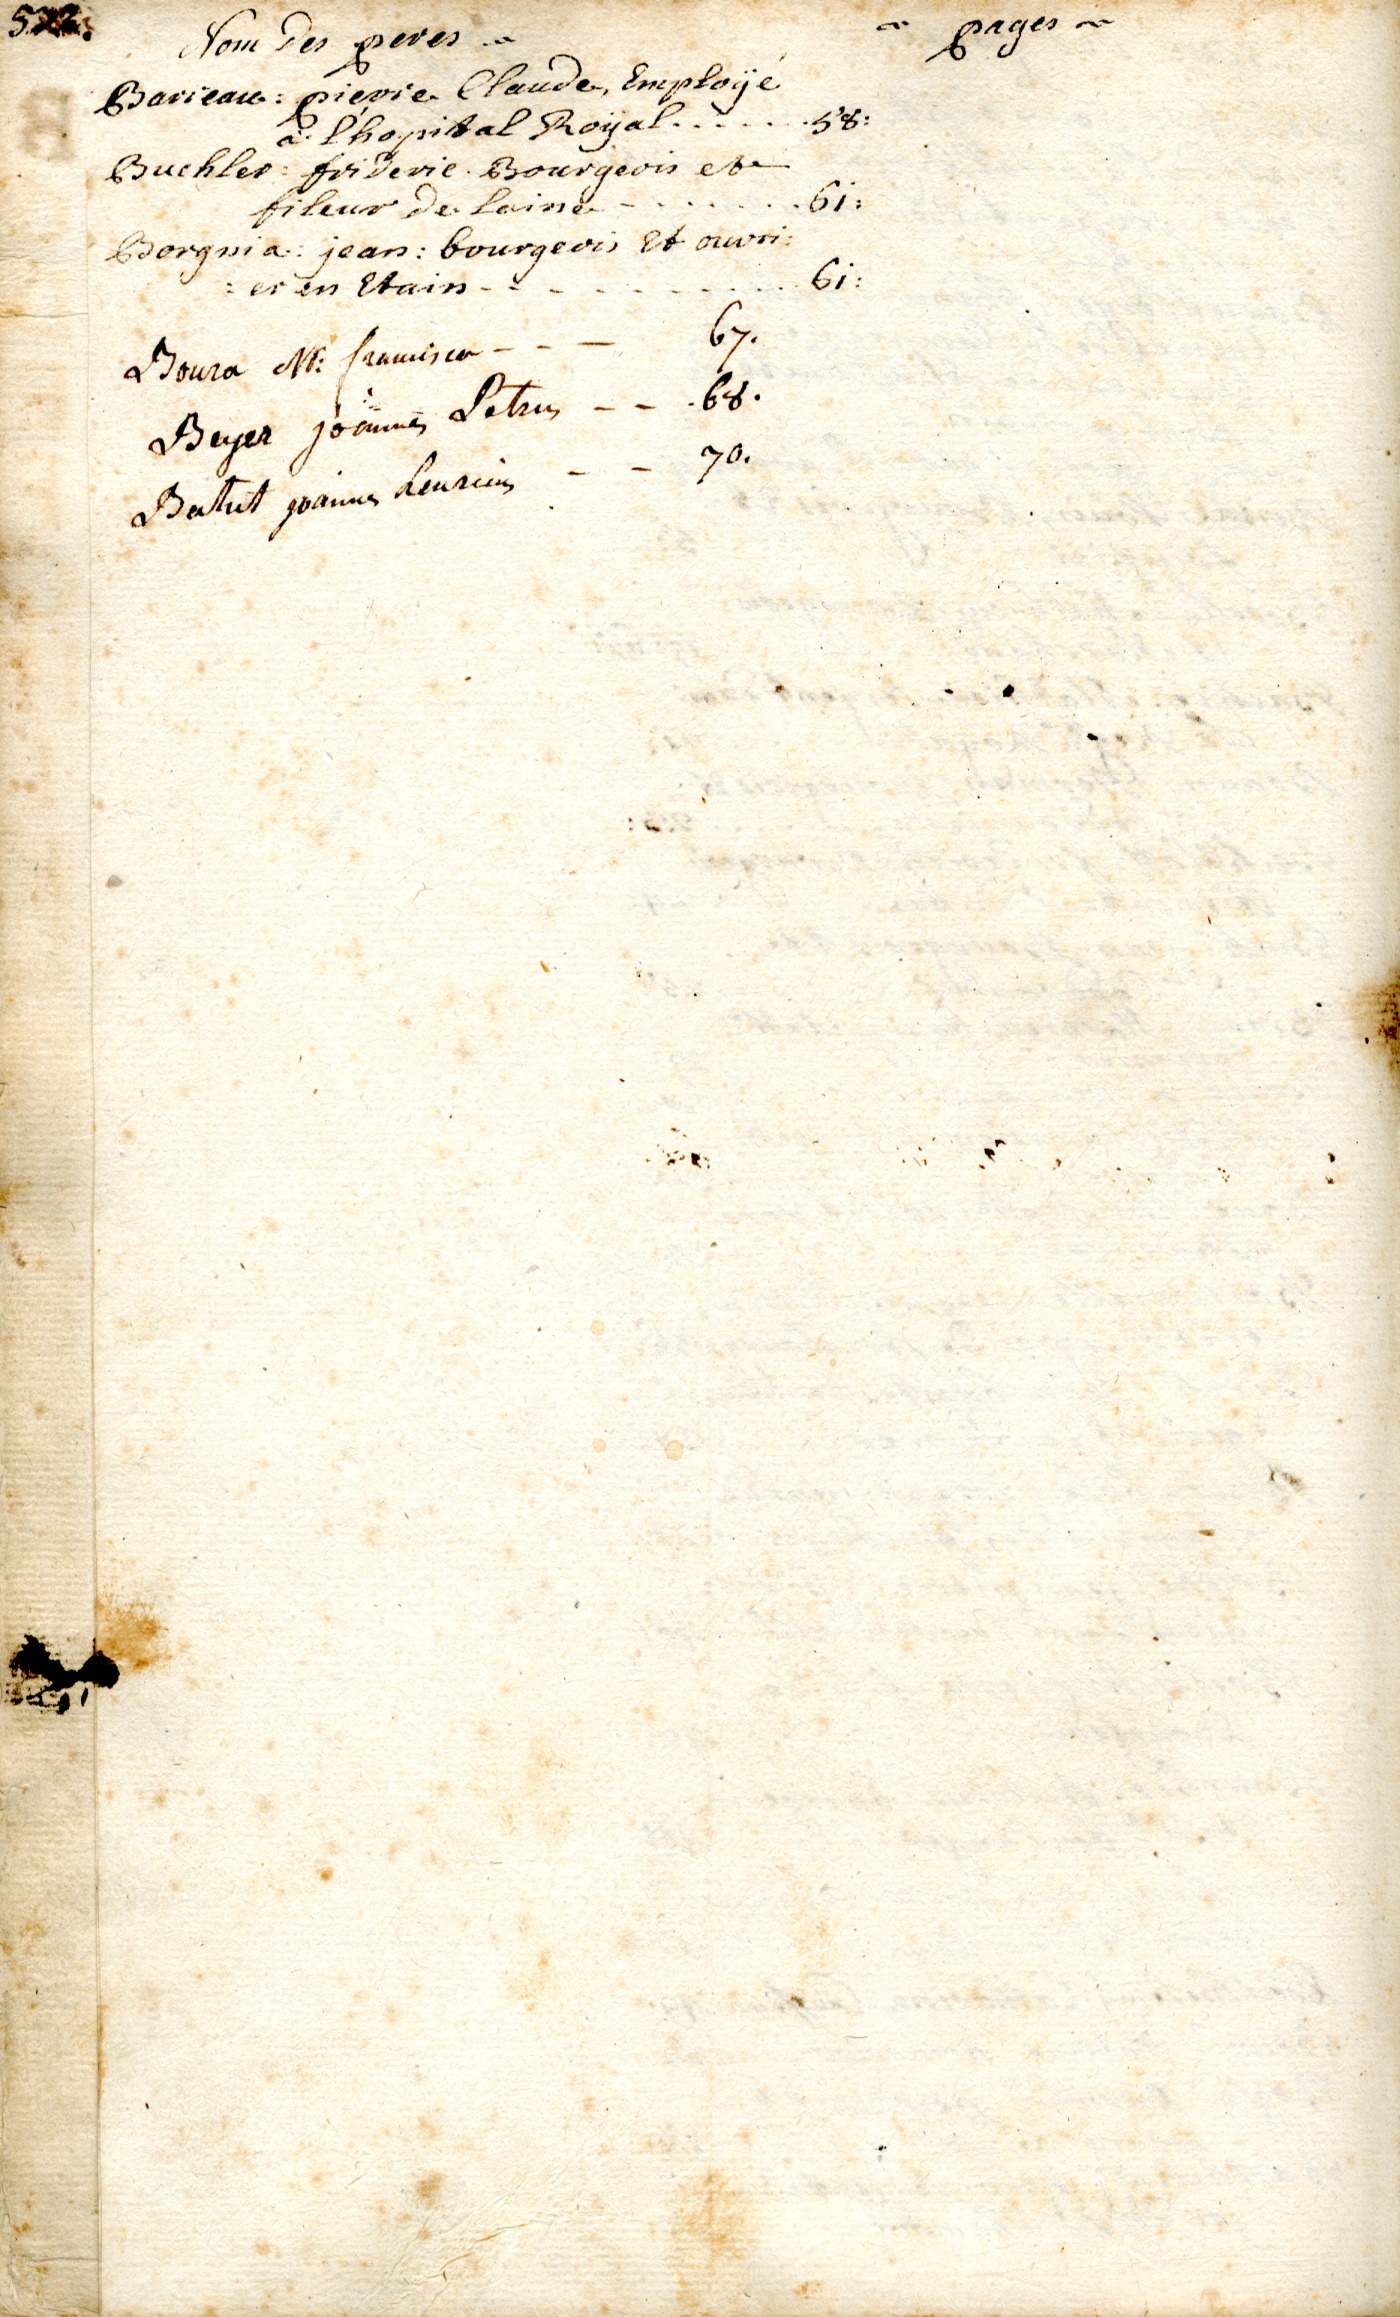 Nom Des peres ~ ~ pages ~
Barreau: pierre Claude, Employé
à l'hopital Roÿal . . . . . . 58:
Buchler: frideric. Bourgeois et
fileur de laine - . . . . . . 61:
Borgnia: jean: bourgeois Et ouvri:
: er en Etain - - - - - . . . . . 61:
Boura francisca - - - 67.
Beyer joannes Petrus - - 68.
Batut joannes - - 70.